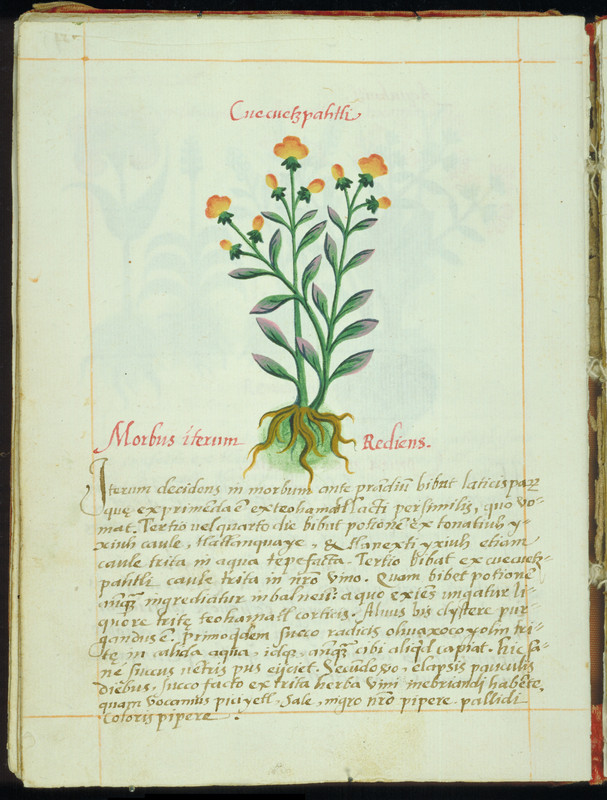 Cuecuetzpahtli
Morbus iterum Rediens.
Iterum decidens in morbum ante prandiũ bibat laticis par
quę exprimẽda ẽ ex teohamatl lacti persimilis, quo vo-
mat. Tertio uel quarto die bibat potionẽ ex tonatiuh y-
xiuh caule, tlatlanquaye, & tlapexti yxiuh etiam
caule trita in aqua tepefacta. Tertio bibat ex cuecuetz-
pahtli caule trita in nr̃o vino. Quam bibet potionẽ
ingrediatur in balneũ: a quo exiẽs ungatur li-
quore tritę teohamatl corticis. Aluus bis clystere pur
gandus ẽ. primo q̃dem succo radicis oliuaxocoyolin tri-
tę in calida aqua, idq̃, cibi aliq̃d capiat. hic sa-
nẽ succus uẽtris pus eijciet. Secũdo uo, elapsis pauculis
diebus, succo facto ex trita herba vim inebriandi habẽte,
quam vocamus piciyetl, sale, nigro nr̃o pipere pallidi
coloris pipere.